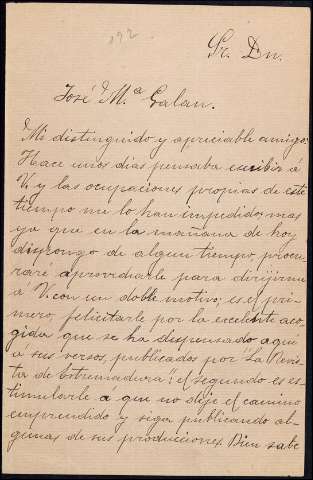 192
Sr. Dn.
José M.ª Galan.
Mi distinguido y apreciable amigo:
Hace unos dias pensaba escibir á
V. y las ocupaciones propias de este
tiempo me lo han impedido; mas
ya que en la mañana de hoy
dispongo de algun tiempo, procu-
raré aprovecharle para dirijirme
á V. con un doble motivo; es el pri-
mero, felicitarle por la excelente aco-
gida que se ha dispensado aqui
á sus versos, publicados por "La Revis-
ta de Extremadura"; el segundo es es-
timularle a que no deje el camino
emprendido y siga publicando al-
gunas de sus producciones. Bien sabe